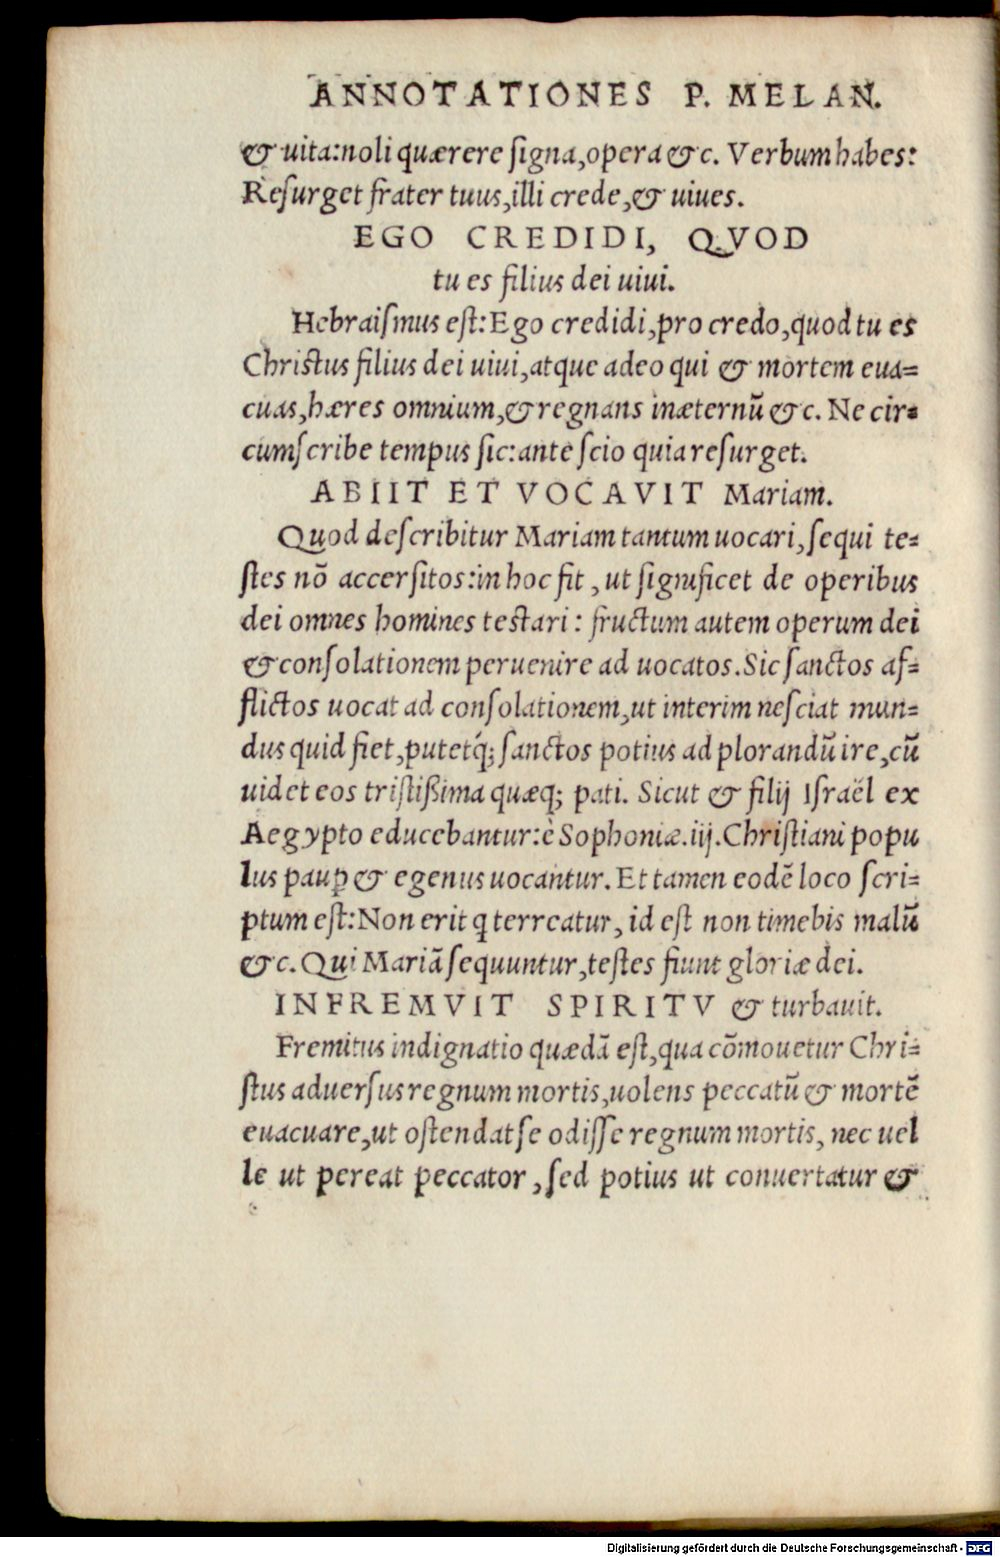 ANNOTATIONES P. MELAN.
& uita: noli quærere ſigna, opera &c. Verbum habes:
Reſurget frater tuus, illi crede, & uiues.
EGO CREDIDI, QVOD
tu es filius dei uiui.
Hebraiſmus eſt: Ego credidi, pro credo, quod tu es
Chriſtus filius dei uiui, atque adeo qui & mortem eua=
cuas, hæres omnium, & regnans inæternũ &c. Ne cir=
cumſcribe tempus ſic: ante ſcio quia reſurget.
ABIIT ET VOCAVIT Mariam.
Quod deſcribitur Mariam tantum uocari, ſequi te=
ſtes nõ accerſitos: in hoc fit, ut ſignificet de operibus
dei omnes homines teſtari: fructum autem operum dei
& conſolationem peruenire ad uocatos. Sic ſanctos af=
flictos uocat ad conſolationem, ut interim neſciat mun=
dus quid fiet, putetq́; ſanctos potius ad plorandũ ire, cũ
uidet eos triſtißima quæq; pati. Sicut & filij Iſraël ex
Aegypto educebantur: è Sophoniæ .iij. Chriſtiani popu
lus paup̱ & egenus uocantur. Et tamen eodẽ loco ſcri=
ptum eſt: Non erit q terreatur, id eſt non timebis malũ
&c. Qui Mariã ſequuntur, teſtes fiunt gloriæ dei.
INFREMVIT SPIRITV & turbauit.
Fremitus indignatio quædã eſt, qua cõmouetur Chri=
ſtus aduerſus regnum mortis, uolens peccatũ & mortẽ
euacuare, ut oſtendat ſe odiſſe regnum mortis, nec uel
le ut pereat peccator, ſed potius ut conuertatur &
Digitalisierung gefördert durch die Deutsche Forschungsgemeinschaft - DFG